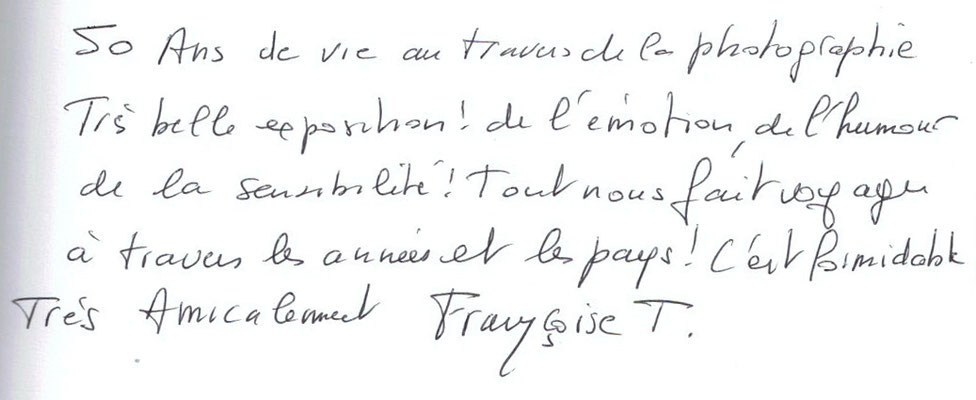 50 Ans de vie au travers de la photographie
Très belle exposition! de l'émotion, de l'humour
de la sensibilité! Tout nous fait voyager
à travers les années et les pays! C'est formidable
Très Amicalement Françoise T.